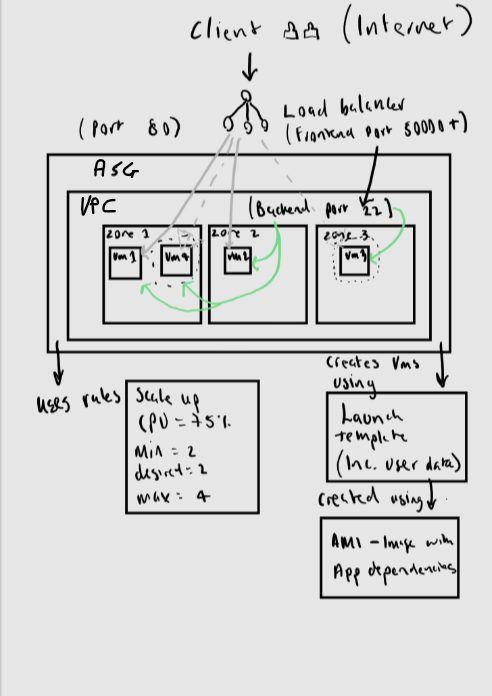 Client (Internet)
Load balancer
(Port 80)
(Frontend port 50000+)
ASG
VPC
(Backend port 22)
zone 1
zone 2
zone 3
Vm1
Vm4
Vm2
Vm3
uses rules
Scale up
CPU = 75%
Min = 2
desired = 2
max = 4
Creates Vms
using
Launch
template
(Inc. user data)
created using
AMI - Image with
App dependencies